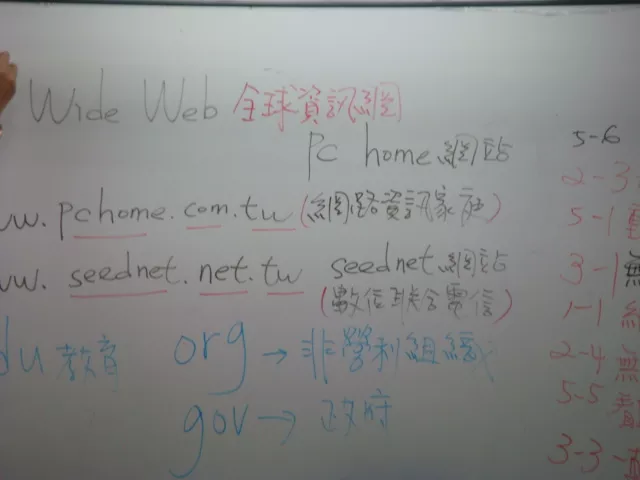 Wide Web 全球資訊網
Pc home 網站
ww. pchome.com.tw (網路資訊家庭)
ww. seednet.net.tw seednet 網站
(數位聯合電信)
du 教育 org → 非營利組織
gov → 政府
5-6
2-3
5-1
3-1 無
1-1
2-4 無
5-5
3-3